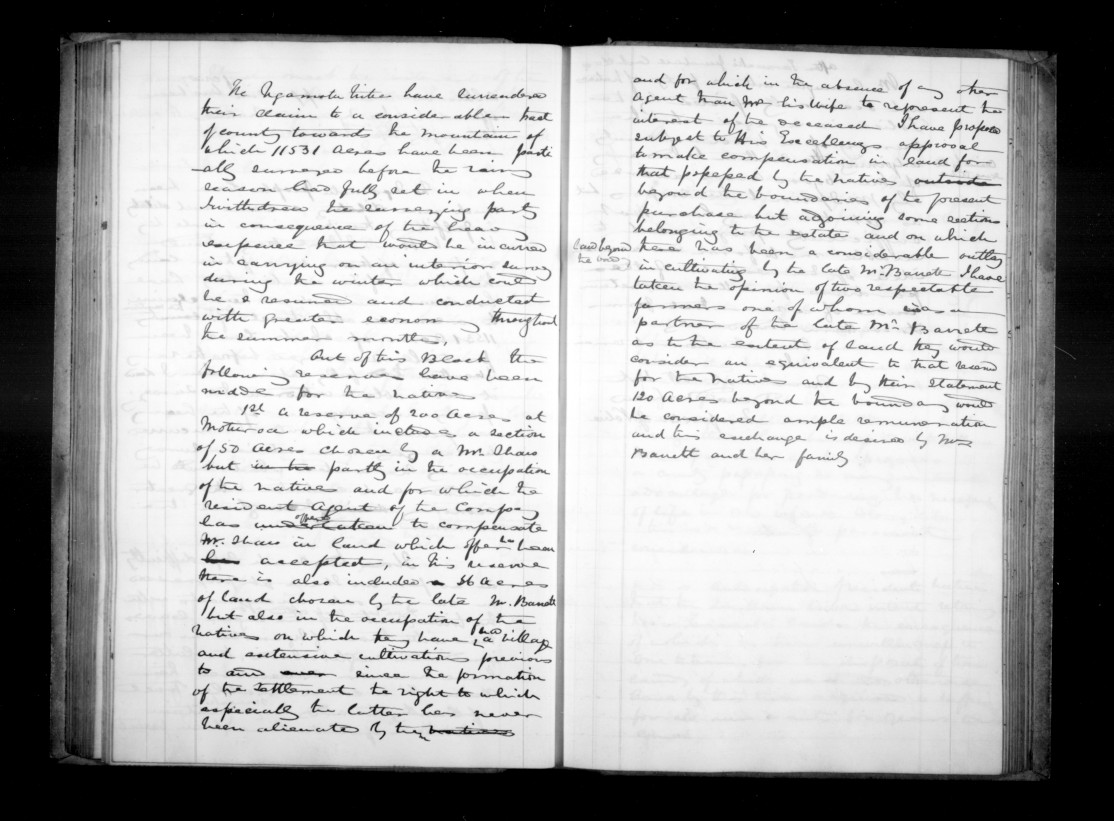 The Ngamotu tribes have surrendered
their claim to a considerable tract
of country towards the mountain of
which 11531 acres have been parti
-ally surveyed before the rainy
season had fully set in when
I withdrew the surveying party
in consequence of the heavy
expence that would be incurred
in carrying on an interior survey
during the winter which could
be resumed and conducted
with greater economy throughout
the summer months.
Out of this Block the
following reserves have been
made for the natives
1st A reserve of 200 Acres at
Moturoa which includes a section
of 50 Acres chosen by a Mr. Shaw
but in the partly in the occupation
of the natives and for which the
resident Agent of the Company
has undertaken offered to compensate
Mr. Shaw in land which offer has been
has accepted, in this reserve
there is also included a 36 Acres
of land chosen by the late Mr. Barrett
but also in the occupation of the
natives on which they have had a village
and extensive cultivations previous
to and even since the formation
of the settlement the right to which
especially the latter has never
been alienated by them natives
and for which in the absence of any other
Agent than Mrs his wife to represent the
interest of the deceased I have proposed
subject to His Excellency's approval
to make compensation in land for
that possessed by the natives outside
beyond the boundaries of the present
purchase but adjoining some sections
belonging to the estate and on which
land beyond
the
there has been a considerable outlay
in cultivating by the late Mr. Barrett I have
taken the opinion of two respectable
farmers one of whom was a
partner of the late Mr. Barrett
as to the extent of land they would
consider an equivalent to that reserved
for the natives and by their statement
120 Acres beyond the boundary would
be considered ample remuneration
and this exchange is desired by Mrs
Barrett and her family